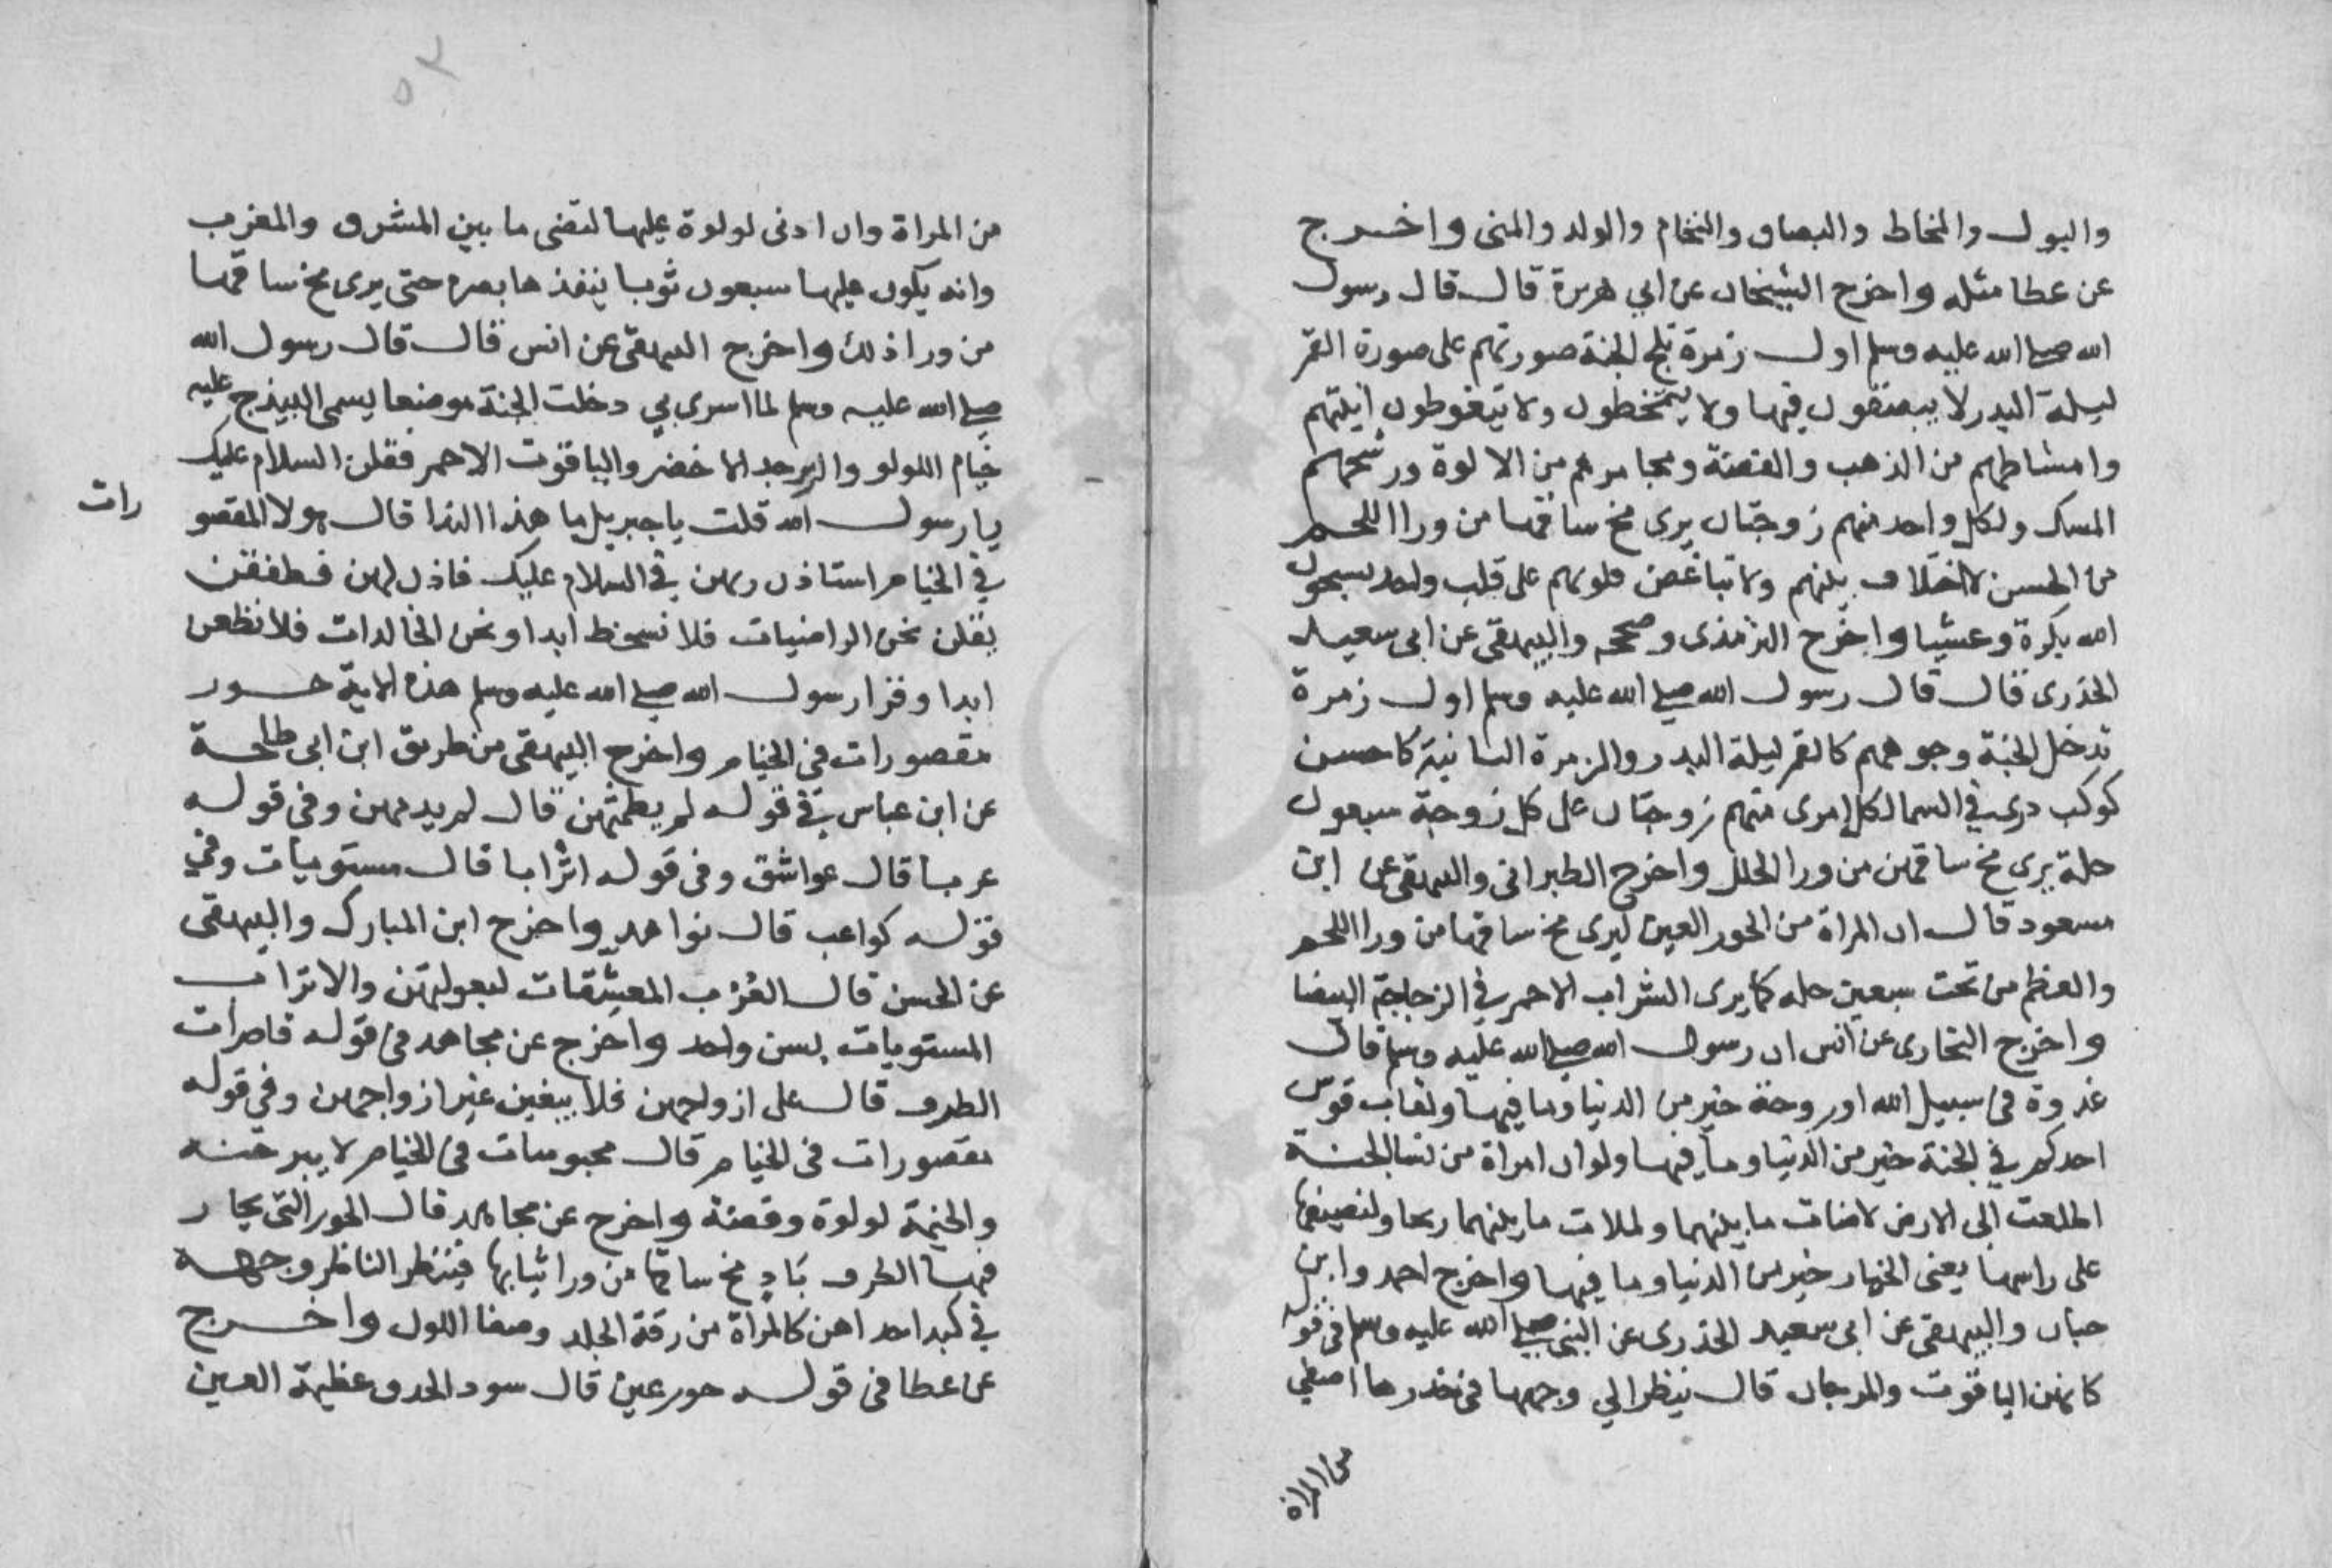 والبول والمخاط والبصاق والنخام والولد والمنى واخرج
عن عطا مثله واخرج الشيخان عن ابي هريرة قال قال رسول
الله صلى الله عليه وسلم اول زمرة تلج الجنة صورتهم على صورة القمر
ليلة البدر لا يبصقون فيها ولا يتمخطون ولا يتغوطون انيتهم
وامشاطهم من الذهب والفضة ومجامرهم من الالوة ورشحهم
المسك ولكل واحد منهم زوجتان يرى مخ ساقهما من ورا اللحم
من الحسن لا اختلاف بينهم ولا تباغض قلوبهم على قلب واحد يسبحون
الله بكرة وعشيا واخرج الترمذى وصححه والبيهقى عن ابى سعيد
الخذرى قال قال رسول الله صلى الله عليه وسلم اول زمرة
تدخل الجنة وجوههم كالقمر ليلة البدر والزمرة الثانية كاحسن
كوكب درى في السما لكل امرى منهم زوجتان على كل زوجة سبعون
حلة يرى مخ ساقهن من ورا الحلل واخرج الطبرانى والبيهقى عن ابن
مسعود قال ان المراة من الحور العين ليرى مخ ساقها من ورا اللحم
والعظم من تحت سبعين حله كما يرى الشراب الاحمر في الزجاجة البيضا
واخرج البخارى عن انس ان رسول الله صلى الله عليه وسلم قال
غدوة في سبيل الله او روحة خير من الدنيا وما فيها ولقاب قوس
احدكم في الجنة خير من الدنيا وما فيها ولو ان امراة من نسا الجنة
اطلعت الى الارض لاضات ما بينهما ولملات ما بينهما ريحا ولنصيفها
على راسها يعنى الخمار خير من الدنيا وما فيها واخرج احمد وابن
حبان والبيهقى عن ابى سعيد الخذرى عن النبى صلى الله عليه وسلم في قوله
كانهن الياقوت والمرجان قال ينظر الي وجهها في خدرها اصفي
من المراة
من المراة وان ادنى لولوة عليها لتضى ما بين المشرق والمغرب
وانه يكون عليها سبعون ثوبا ينفذها بصره حتى يرى مخ ساقها
من ورا ذلك واخرج البيهقى عن انس قال قال رسول الله
صلى الله عليه وسلم لما اسرى بي دخلت الجنة موضعا يسمى البيذج عليه
خيام اللولو والزبرجد الاخضر والياقوت الاحمر فقلن السلام عليك
يا رسول الله قلت يا جبريل ما هذا الندا قال هولا المقصو
رات
في الخيام استاذن ربهن في السلام عليك فاذن لهن فطفقن
يقلن نحن الراضيات فلا نسخط ابدا ونحن الخالدات فلا نظعن
ابدا وقرا رسول الله صلى الله عليه وسلم هذه الاية حور
مقصورات في الخيام واخرج البيهقى من طريق ابن ابى طلحة
عن ابن عباس في قوله لم يطمثهن قال لم يدمهن وفى قوله
عربا قال عواشق وفى قوله اترابا قال مستويات وفي
قوله كواعب قال نواهد واخرج ابن المبارك والبيهقى
عن الحسن قال العرب المعشقات لبعولتهن والاتراب
المستويات بسن واحد واخرج عن مجاهد في قوله قاصرات
الطرف قال على ازواجهن فلا يبغين غير ازواجهن وفي قوله
مقصورات في الخيام قال محبوسات في الخيام لا يبرحنه
والخيمة لولوة وفضة واخرج عن مجاهد قال الحور التى يحار
فيها الطرف باد مخ ساقها من ورا ثيابها فينظر الناظر وجهه
في كبد احداهن كالمراة من رقة الجلد وصفا اللون واخرج
عن عطا في قوله حور عين قال سود الحدق عظيمة العين